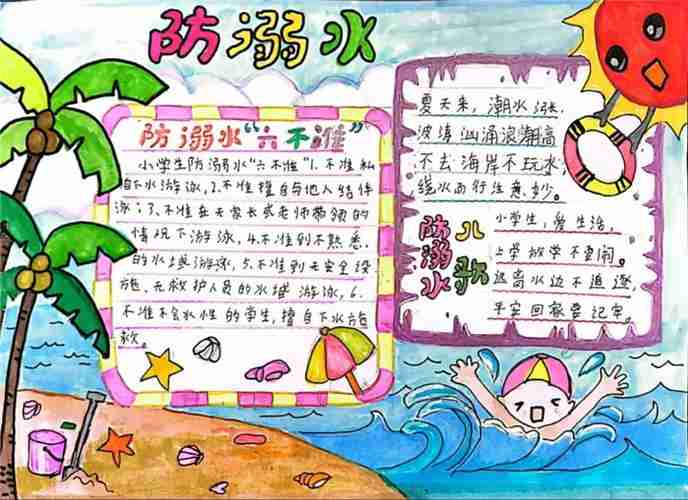 防溺水
防溺水“六不准”
小学生防溺水“六不准”1.不准私
自下水游泳,2.不准擅自与他人结伴
泳;3.不准在无家长或老师带领的
情况下游泳,4.不准到不熟悉
的水域游泳,5.不准到无安全设
施、无救护人员的水域游泳,6.
不准不会水性的学生,擅自下水施
救。
夏天来,潮水涨,
波涛汹涌浪高
不去海岸不玩水,
绕水而行注意妙。
防溺水
儿歌
小学生,爱生活,
上学放学不要闹。
远离水边不追逐,
平安回家要记牢。